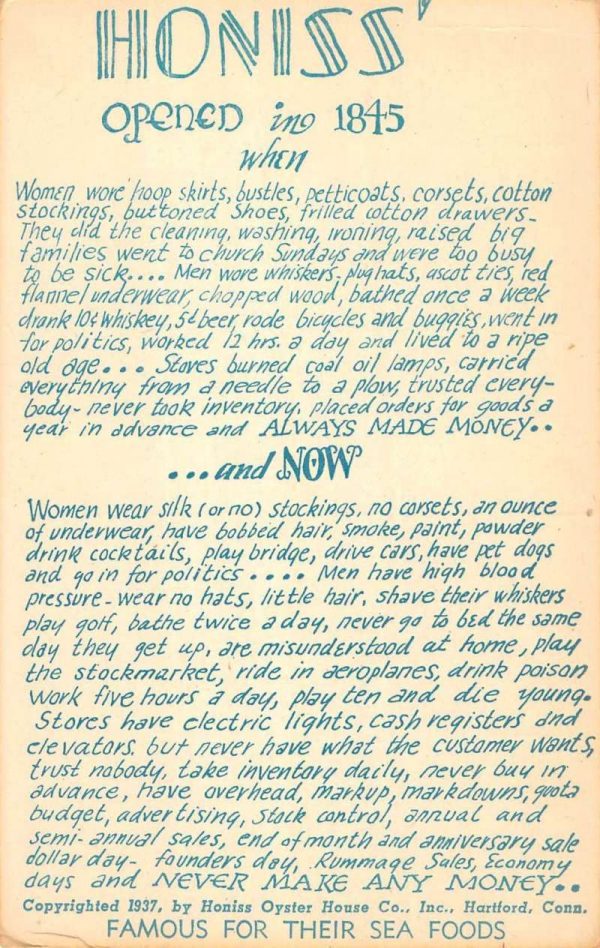 HONISS'
OPENED in 1845
when
Women wore hoop skirts, bustles, petticoats, corsets, cotton
stockings, buttoned shoes, frilled cotton drawers-
They did the cleaning, washing, ironing, raised big
families went to church Sundays and were too busy
to be sick.... Men wore whiskers, plug hats, ascot ties, red
flannel underwear, chopped wood, bathed once a week
drank 10¢ whiskey, 5¢ beer, rode bicycles and buggies, went in
for politics, worked 12 hrs. a day and lived to a ripe
old age... Stoves burned coal oil lamps, carried
everything from a needle to a plow, trusted every-
body- never took inventory, placed orders for goods a
year in advance and ALWAYS MADE MONEY..
...and NOW
Women wear silk (or no) stockings, no corsets, an ounce
of underwear, have bobbed hair, smoke, paint, powder
drink cocktails, play bridge, drive cars, have pet dogs
and go in for politics.... Men have high blood
pressure- wear no hats, little hair, shave their whiskers
play golf, bathe twice a day, never go to bed the same
day they get up, are misunderstood at home, play
the stockmarket, ride in aeroplanes, drink poison
work five hours a day, play ten and die young.
Stores have electric lights, cash registers and
elevators, but never have what the customer wants,
trust nobody, take inventory daily, never buy in
advance, have overhead, markup, markdowns, quota
budget, advertising, stock control, annual and
semi-annual sales, end of month and anniversary sale
dollar day- founders day, Rummage Sales, Economy
days and NEVER MAKE ANY MONEY..
Copyrighted 1937, by Honiss Oyster House Co., Inc., Hartford, Conn.
FAMOUS FOR THEIR SEA FOODS